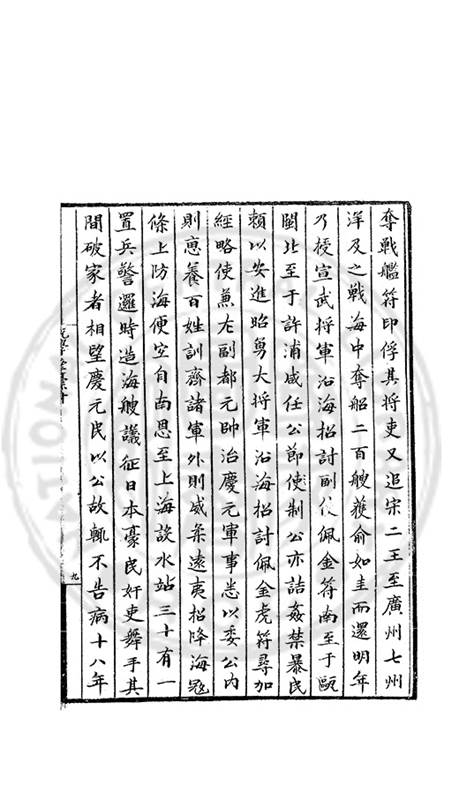 奪戰艦符印俘其將吏又追宋二王至廣州七州
洋及之戰海中奪船二百艘獲俞如圭而還明年
乃授宣武將軍沿海招討副使佩金符南至于甌
閩北至于許浦咸任公節使制公亦詰姦禁暴民
頼以安進昭勇大將軍沿海招討佩金虎符尋加
經略使兼左副都元帥治慶元軍事悉以委公内
則惠養百姓訓齊諸軍外則威柔遠夷招降海冦
條上防海便宜自南恩至上海設水站三十有一
置兵警邏時造海艘議征日本豪民奸吏舞手其
間破家者相望慶元民以公故輒不告病十八年
九